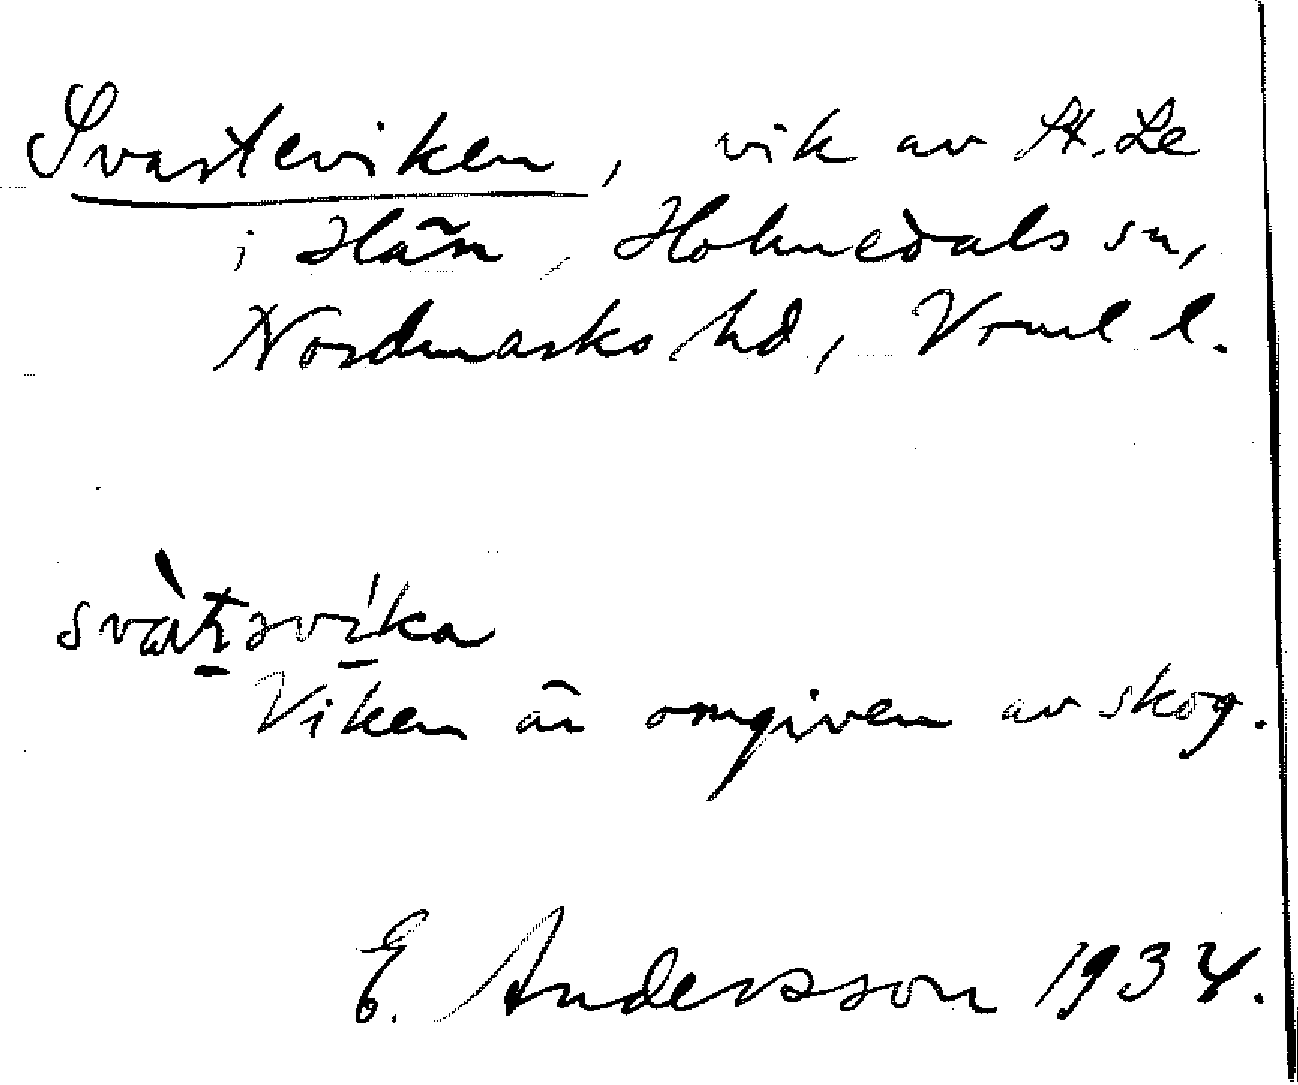 Svarteviken, vik av St. Le
i Hän, Holmedals sn,
Nordmarks hd, Vrml l.
svàt̠əví̠ka
Viken är omgiven av skog.
E. Andersson 1934.